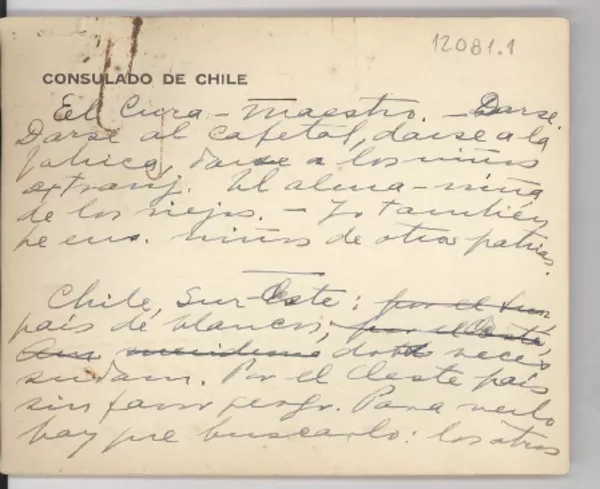 12081.1
CONSULADO DE CHILE
El Cura - maestro. - Darse.
Darse al cafetal, darse a la
fabrica, darse a los niños
extranj. El alma - niña
de los viejos. - Yo también
he ens. niños de otras patrias.
Chile, Sur-Oeste: por el sur
país de blancos, por el Oeste,
dos veces
sudam. Por el Oeste país
sin favor geogr. Para verlo
hay que buscarlo: los otros